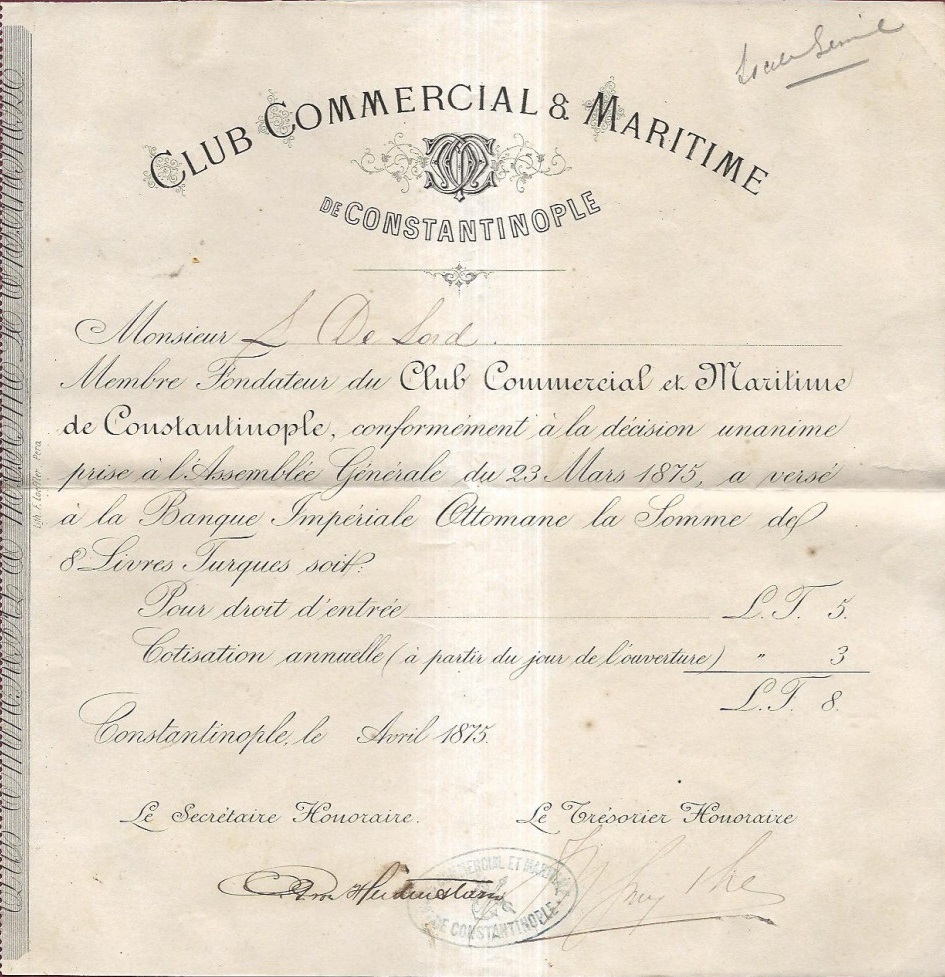 CLUB COMMERCIAL & MARITIME
DE CONSTANTINOPLE
Monsieur L De Lord.
Membre Fondateur du Club Commercial et Maritime
de Constantinople, conformément à la décision unanime
prise à l'Assemblée Générale du 23 Mars 1875, a versé
à la Banque Impériale Ottomane la Somme de
8 Livres Turques soit:
Pour droit d'entrée L.T. 5.
Cotisation annuelle (à partir du jour de l'ouverture) " 3
L.T. 8.
Constantinople, le Avril 1875.
Le Secrétaire Honoraire. Le Trésorier Honoraire
COMMERCIAL ET MARITIME
DE CONSTANTINOPLE
Lith. F. Loeffler Pera